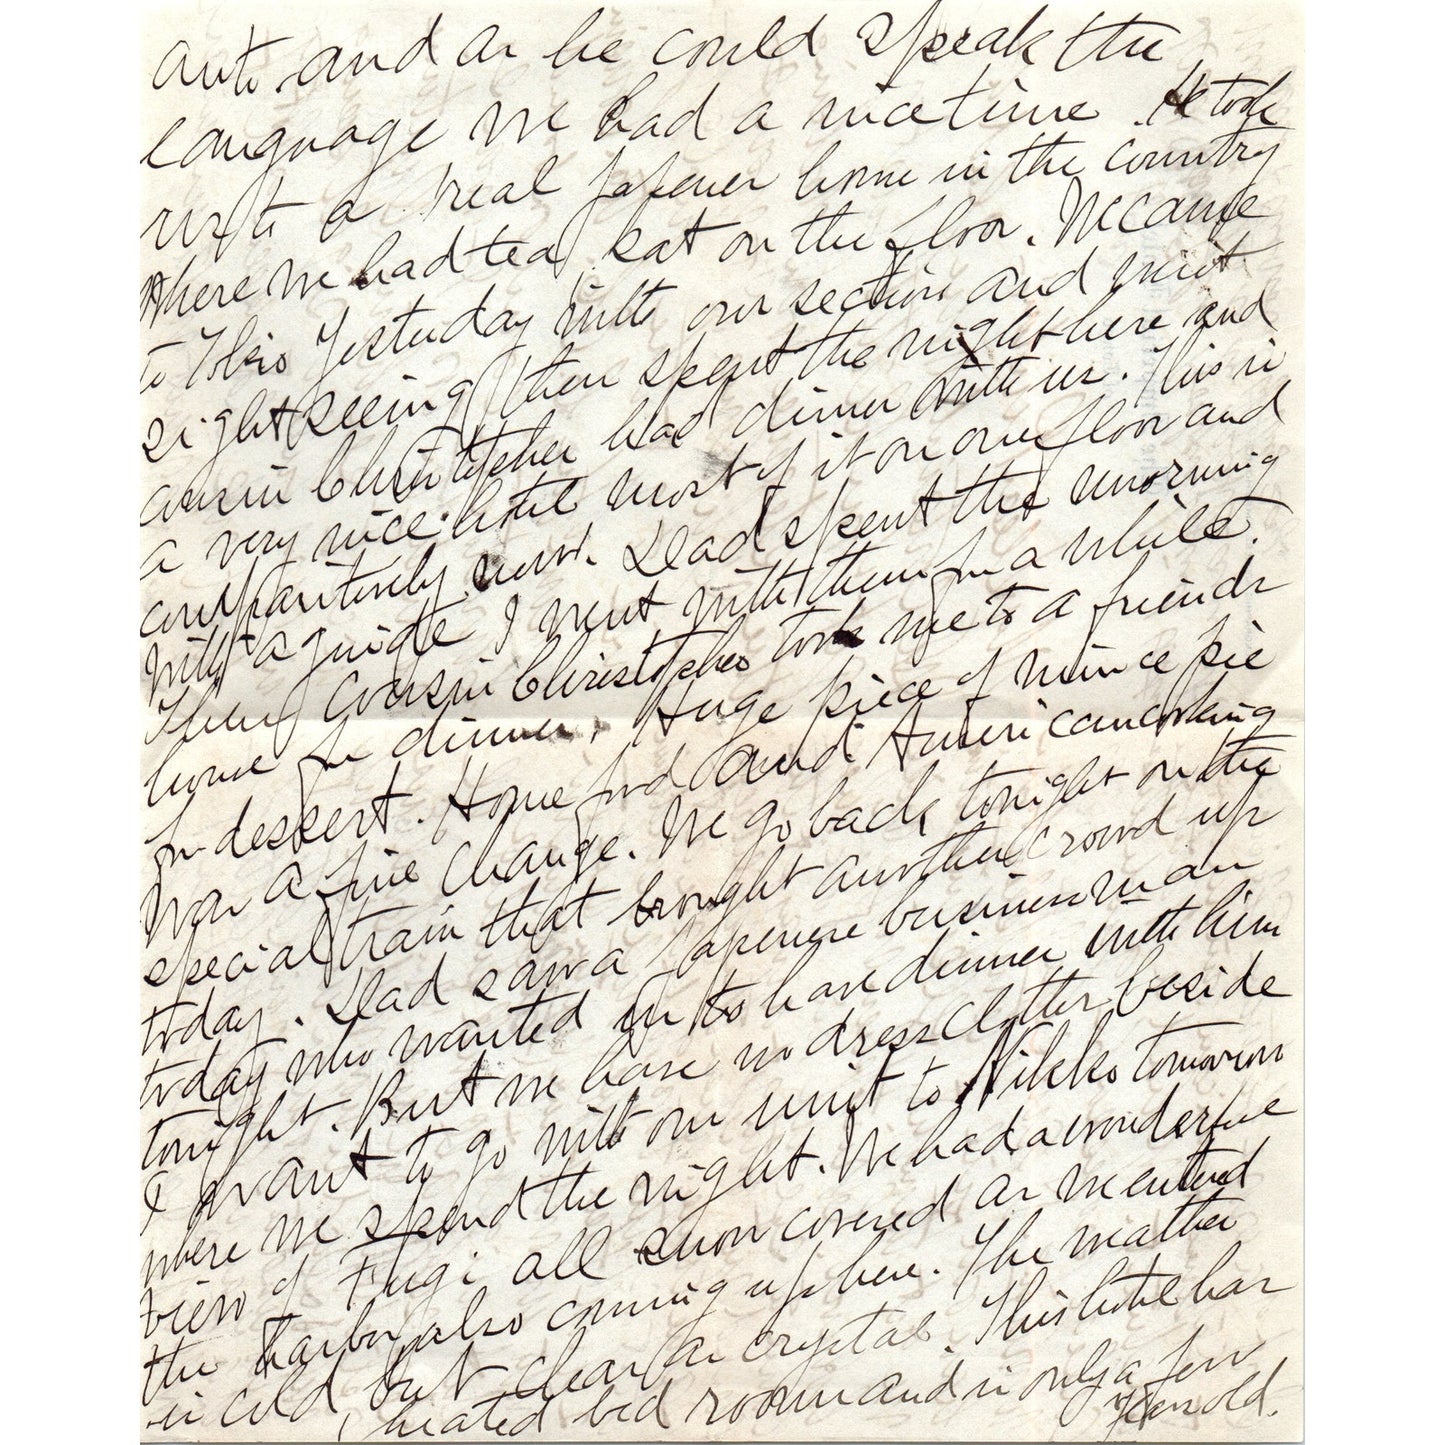 auto and as he could speak the
language we had a nice time. He took
us to a real Japenese home in the country
where we had tea, sat on the floor. We came
to Tokio Yesterday with our section and went
sightseeing then spent the night here and
cousin Christopher had dinner with us. This is
a very nice hotel most of it on one floor and
comparitively new. Dad spent the morning
with a guide I went with them for a while.
Then Cousin Christopher took me to a friends
house for dinner. Huge piece of mince pie
for dessert. Home food and American cooking
was a fine change. We go back tonight on the
special train that brought another crowd up
today. Dad saw a Japenese business man
today who wanted us to have dinner with him
tonight. But we have no dress clothes beside
I want to go with our unit to Nikko tomorrow
where we spend the night. We had a wonderful
view of Fugi all snow covered as we entered
the Harbor, also coming up here. The weather
is cold but clear as crystal. This hotel has
heated bed rooms and is only a few
Years old.